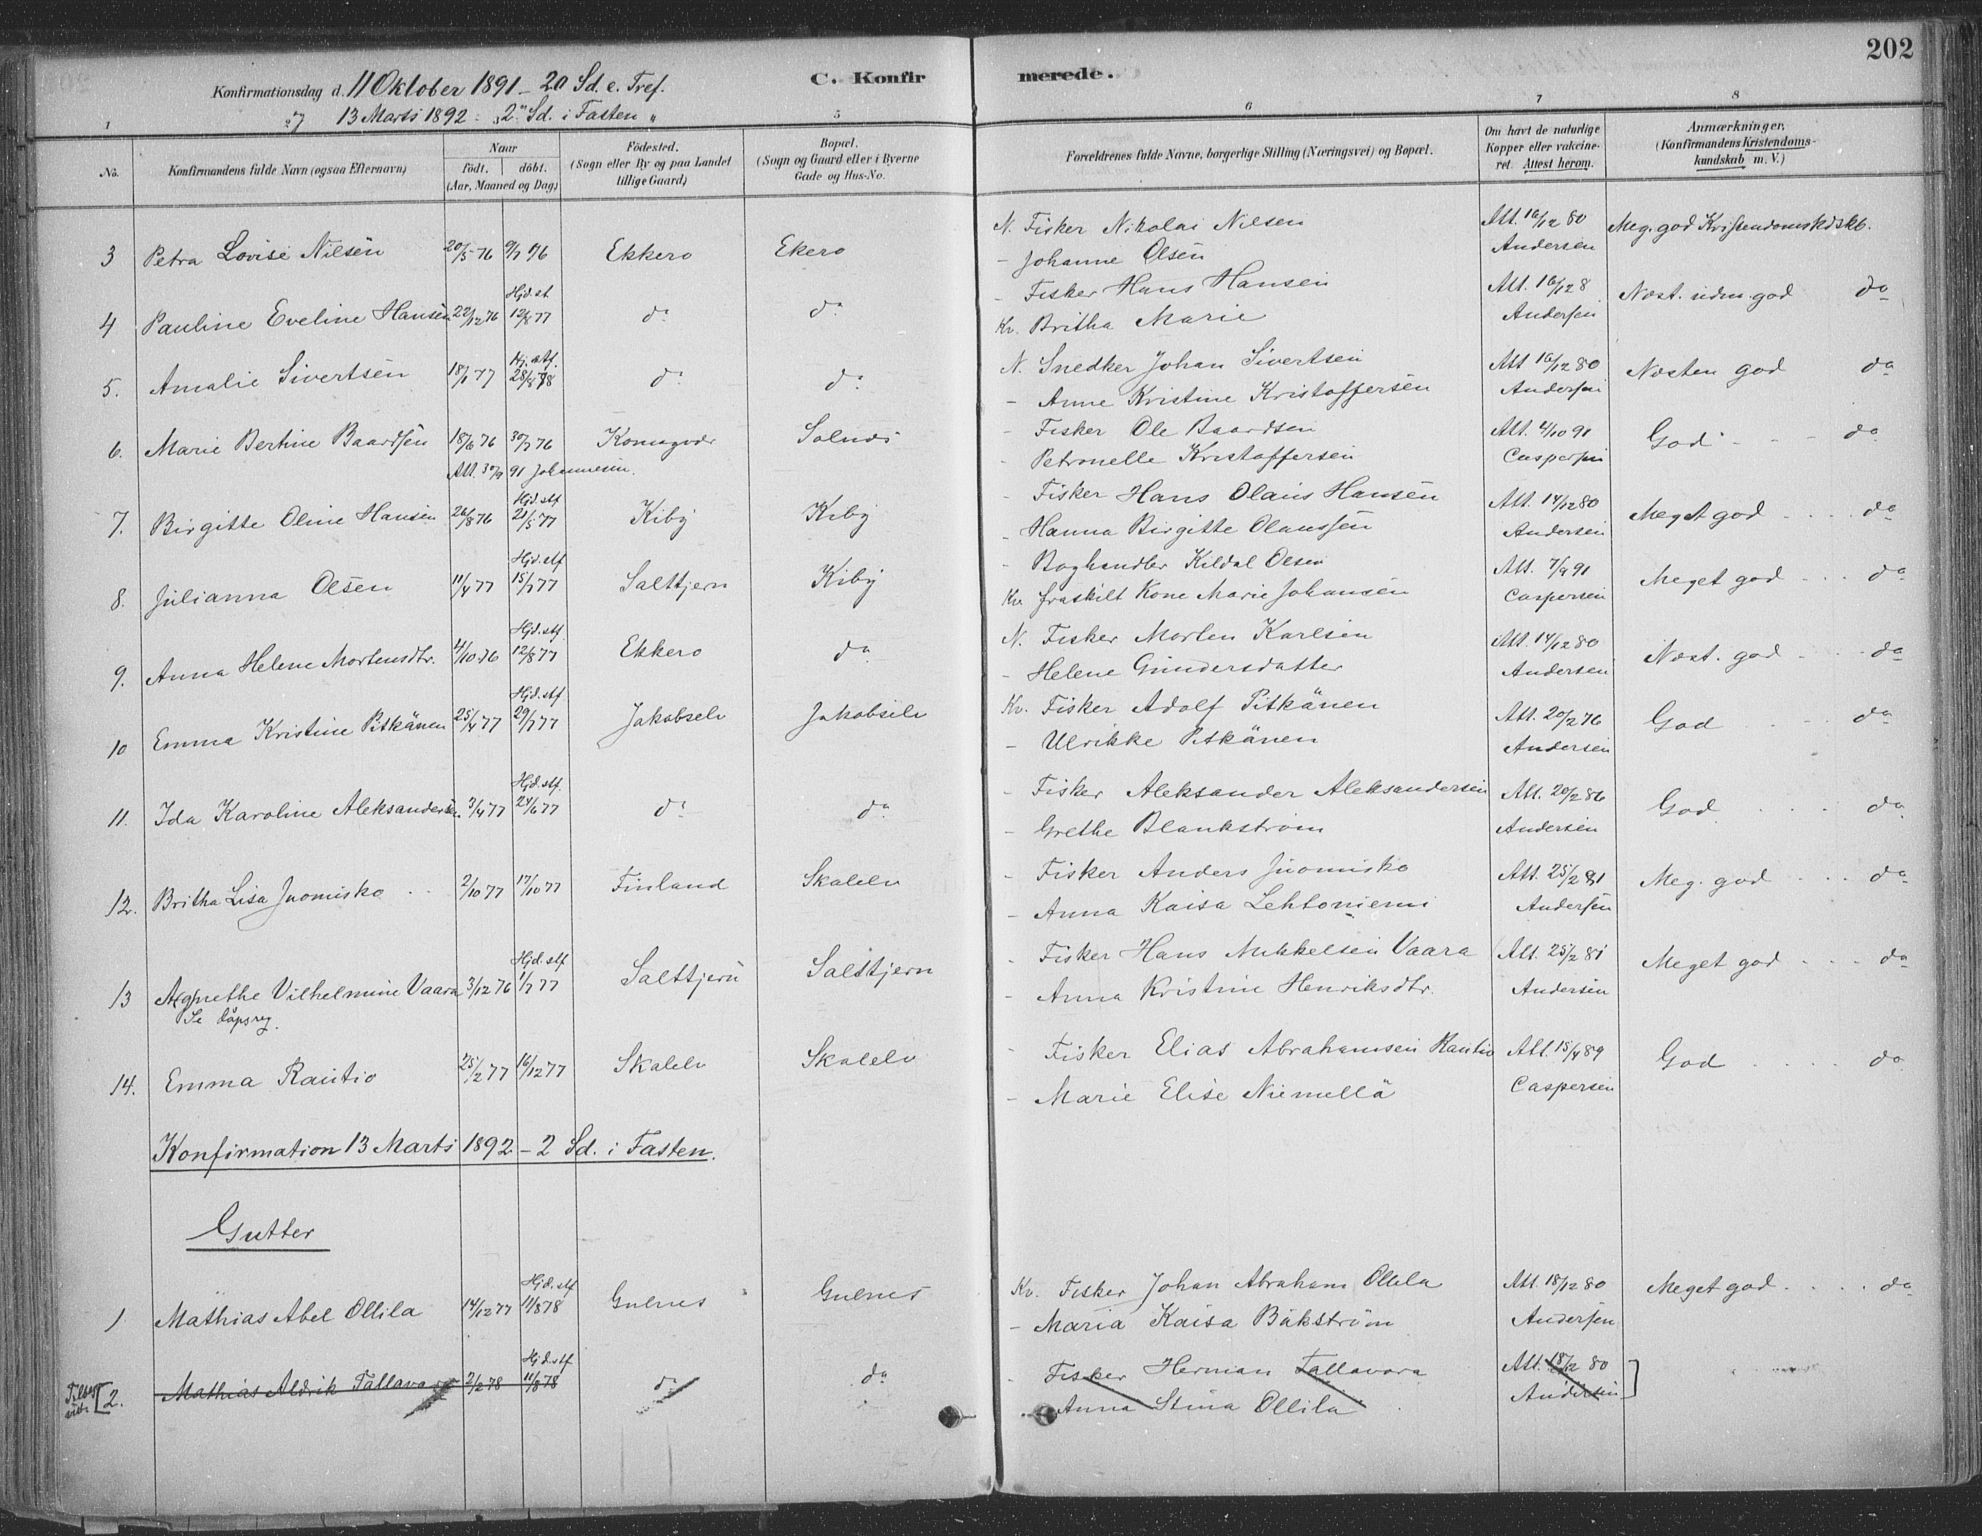 202
Konfirmationsdag d. 11 Oktober 1891 - 20 Sd. e. Tref.
C. Konfirmerede.
13 Marts 1892 - 2 Sd. i Fasten
1 5 6 7 8
No. Konfirmandens fulde Navn (ogsaa Efternavn) Naar født. døbt. (Aar, Maaned og Dag) Födested. (Sogn eller By og paa Landet tillige Gaard) Bopæl. (Sogn og Gaard eller i Byerne Gade og Hus-No. Forældrenes fulde Navne, borgerlige Stilling (Næringsvei) og Bopæl. Om havt de naturlige Kopper eller vakcineret. Attest herom. Anmærkninger. (Konfirmandens Kristendomskundskab m. V.)
3 Petra Lovise Nilsen 20/5 76 9/7 76 Ekkerø Ekerø N. Fisker Nikolai Nilsen Att. 16/12 80 Meg. god Kristendomskdskb.
- Johanne Olsen Andersen
4 Pauline Eveline Hansen 22/12 76 Hjd. st. 12/8 77 do do - Fisker Hans Hansen Att. 16/12 8 Næst. udm. god do
Kv. Britha Marie Andersen
5. Amalie Sivertsen 18/1 77 Hj. stf. 28/5 78 do do N. Snedker Johan Sivertsen Att 16/12 80 Næsten god do
- Anne Kristine Kristoffersen Andersen
6. Marie Bertine Baardsen 18/6 76 30/7 76 Komagvær Salnæs - Fisker Ole Baardsen Att. 4/10 91 God do
Att. 30/9 91 Johannesen. - Petronelle Kristoffersen Caspersen
7. Birgitte Oline Hansen 26/8 76 Hjd. stf 21/5 77 Kiby Kiby - Fisker Hans Olaus Hansen Att. 14/12 80 Meget god do
- Hanna Birgitte Olaussen Andersen
8. Julianna Olsen 11/4 77 Hjd. stf 15/7 77 Saltjern Kiby - Boghandler Kildal Olsen Att. 7/9 91 Meget god do
Kv. fraskilt Kone Marie Johansen Caspersen
9. Anna Helene Mortensdtr. 4/10 76 Hjd. stf. 12/8 77 Ekkerø do N. Fisker Morten Karlsen Att. 14/12 80 Næst. god do
- Helene Gundersdatter Andersen
10 Emma Kristine Pitkänen 25/4 77 Hjd. stf 29/7 77 Jakobselv Jakobselv Kv. Fisker Adolf Pitkänen Att. 20/2 76 God do
- Ulrikke Pitkänen Andersen
11. Ida Karoline Aleksandersen 3/4 77 Hjd. stf. 24/6 77 do do - Fisker Aleksander Aleksandersen Att. 20/2 86 God do
- Grethe Blankstrøm Andersen
12. Britha Lisa Juomisko 2/10 77 17/10 77 Finland Skalelv - Fisker Anders Juomisko Att. 25/2 81 Meg. god do
- Anna Kaisa Lehtoniemi Andersen
13 Agnethe Vilhelmine Vaara 3/12 76 Hjd. stf 1/7 77 Saltjern Saltjern - Fisker Hans Mikkelsen Vaara Att. 25/2 81 Meget god do
Se dåpsreg. - Anna Kristine Henriksdtr. Andersen
14. Emma Rautio 25/2 77 16/12 77 Skalelv Skalelv - Fisker Elias Abrahamsen Rautio Att. 15/4 89 God do
- Marie Elise Niemellä Caspersen
Konfirmation 13 Marts 1892 - 2 Sd. i Fasten.
Gutter
1 Mathias Abel Ollila 14/12 77 Hjd. stf 11/8 78 Gulnes Gulnes Kv. Fisker Johan Abraham Ollila Att. 18/12 80 Meget god do
- Maria Kaisa Bäkstrøm Andersen
2. Mathias Aldrik Tallavara 2/2 78 Hjd. stf 11/8 78 do do - Fisker Herman Tallavara Att. 18/12 80
- Anna Stina Ollila Andersen